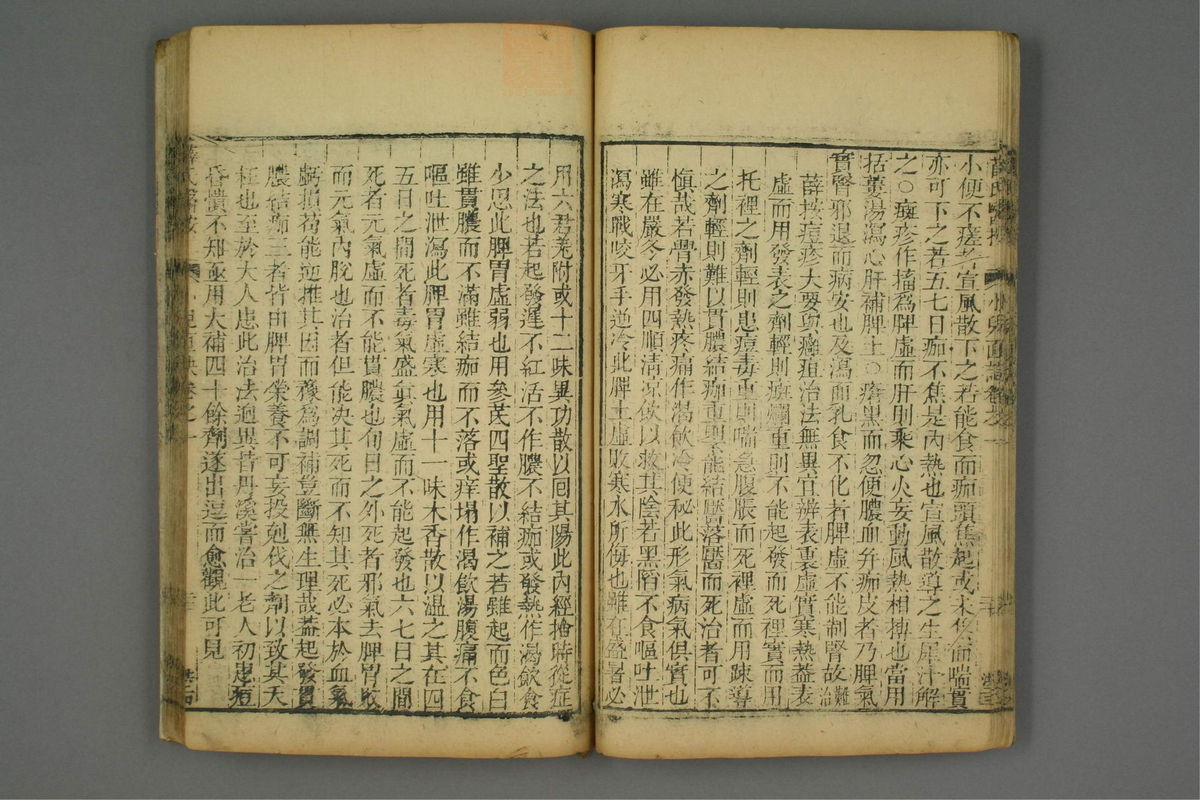 薛氏醫按
小便不瘥者宣風散下之若能食而痂頭焦起或未焦而喘實
亦可下之若五七日痂不焦是內熱也宣風散導之生犀汁解
之○斑疹作搐為脾虛而肝則乘心火妄動風熱相搏也當用
括蔞湯瀉心肝補脾土○瘡黑而忽便膿血并痂皮者乃脾氣
實腎邪退而病安也及瀉而乳食不化者脾虛不能制腎故難治
薛按痘疹大要與癰疽治法無異宜辨表裏虛實寒熱蓋表
虛而用發表之劑輕則斑爛重則不能起發而死裡實而用
托裡之劑輕則患痘毒重則喘急腹脹而死裡虛而用疎導
之劑輕則難以貫膿結痂重則不能結靨落靨而死治者可不
慎哉若胃赤發熱疼痛作渴飲冷便秘此形氣病氣俱實也
雖在嚴冬必用四順清凉飲以救其陰若黑陷不食嘔吐泄
瀉寒戰咬牙手逆冷此脾土虛敗寒水所侮也雖在盛暑必
用六君姜附或十二味異功散以回其陽此內經捨時從症
之法也若起發遲不紅活不作膿不結痂或發熱作渴飲食
少思此脾胃虛弱也用參芪四聖散以補之若雖起而色白
雖貫膿而不滿雖結痂而不落或痒塌作渴飲湯腹痛不食
嘔吐泄瀉此脾胃虛寒也用十一味木香散以温之其在四
五日之間死者毒氣盛真氣虛而不能起發也六七日之間
死者元氣虛而不能貫膿也旬日之外死者邪氣去脾胃敗
而元氣內脫也治者但能决其死而不知其死必本於血氣
虧損苟能逆推其因而豫為調補豈斷無生理哉蓋起發貫
膿結痂三者皆由脾胃榮養不可妄投剋伐之劑以致其夭
枉也至於大人患此治法迥異昔丹溪嘗治一老人初患痘
昏憒不知亟用大補四十餘劑遂出逗而愈觀此可見
薛氏醫按